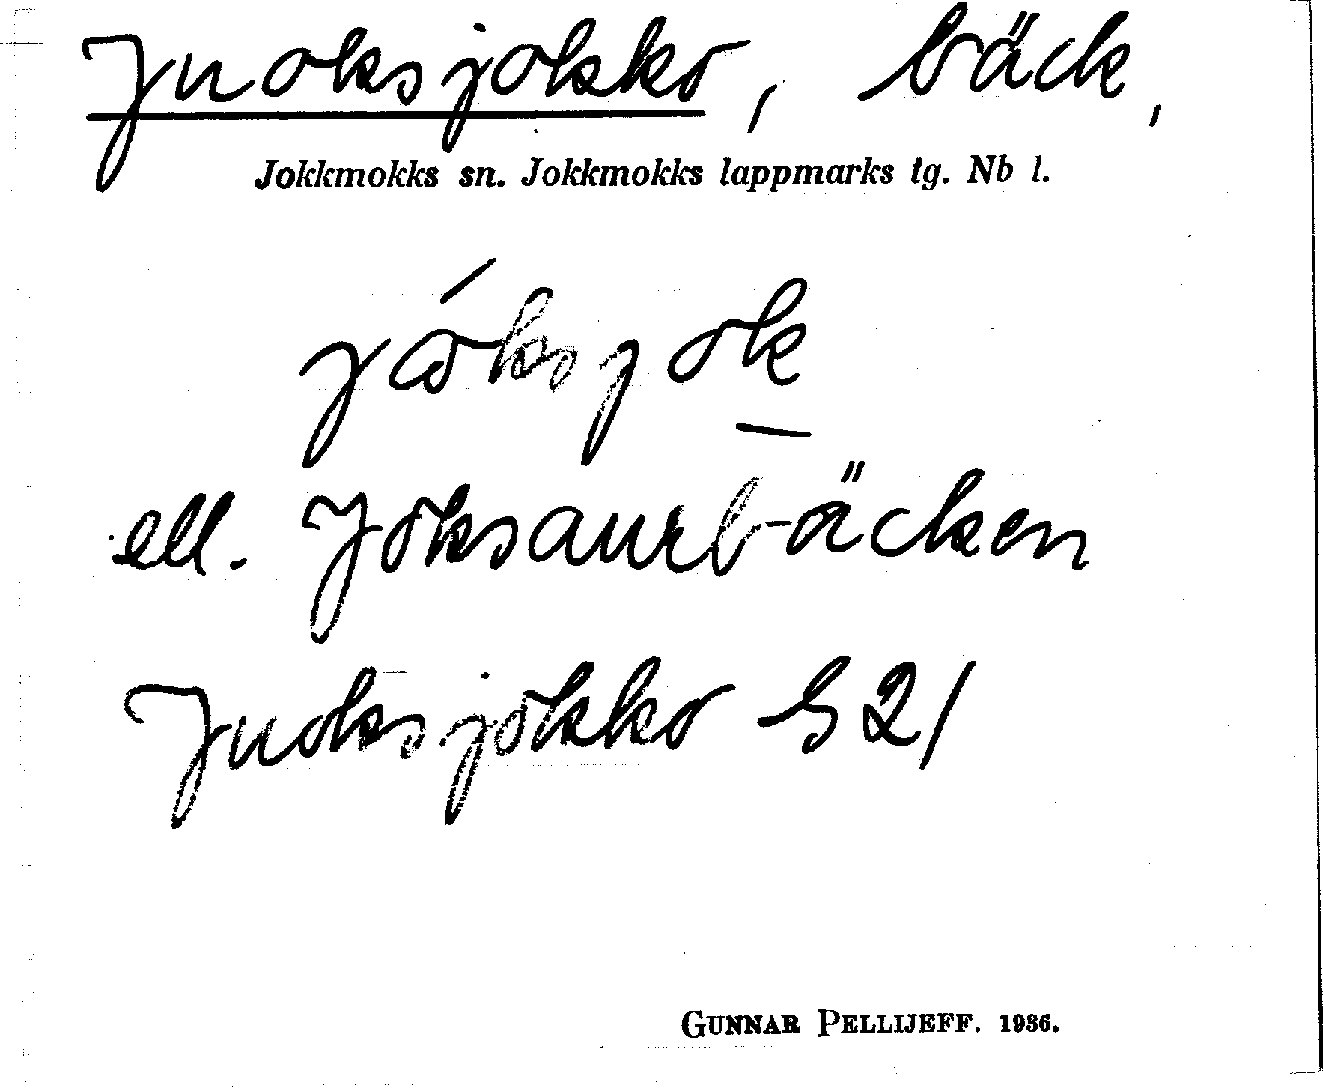 Juoksjokko, bäck,
Jokkmokks sn. Jokkmokks lappmarks tg. Nb l.
jóksjok
ell. Joksaurbäcken
Juoksjokko S21
GUNNAR PELLIJEFF. 1936.